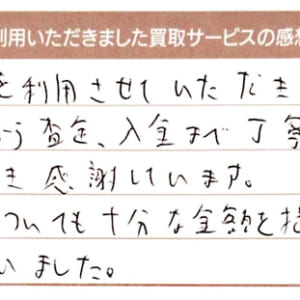 利用いただきました買取サービスの感想
を利用させていただき
う査定、入金まで丁寧
き感謝しています。
ついても十分な金額を提
いました。